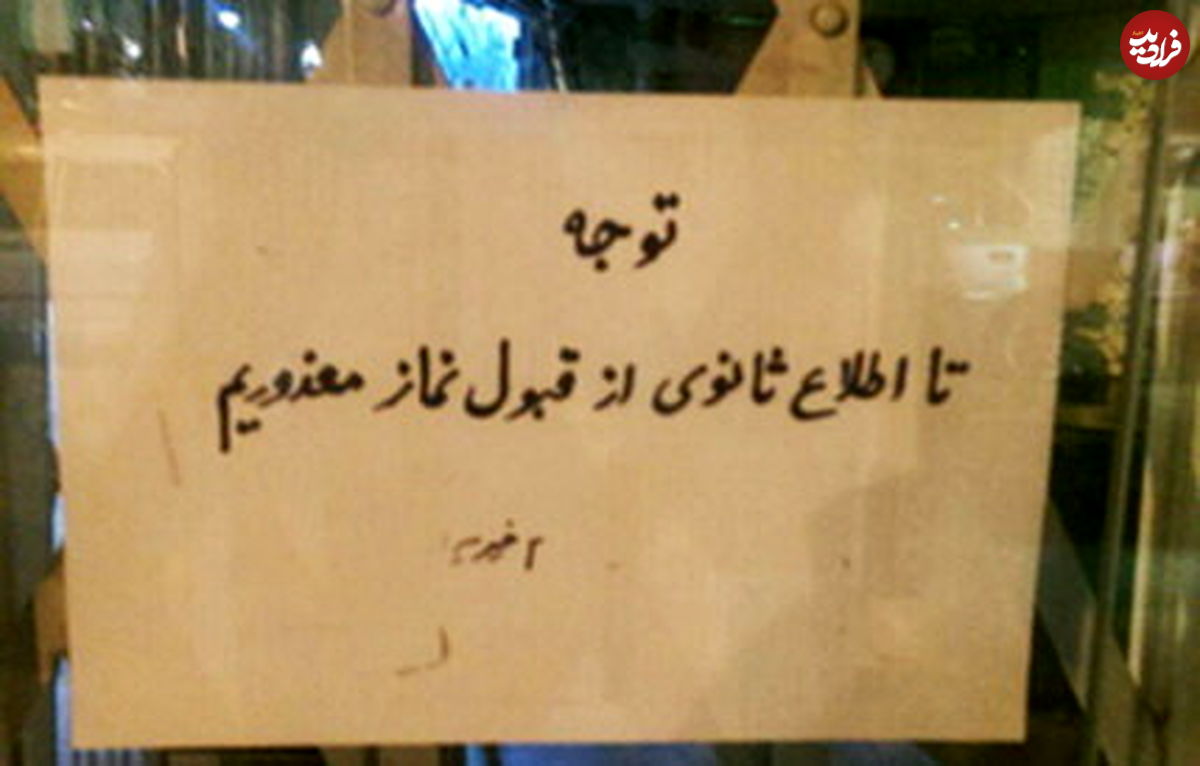 فرادید
توجه
تا اطلاع ثانوی از قبول نماز معذوریم